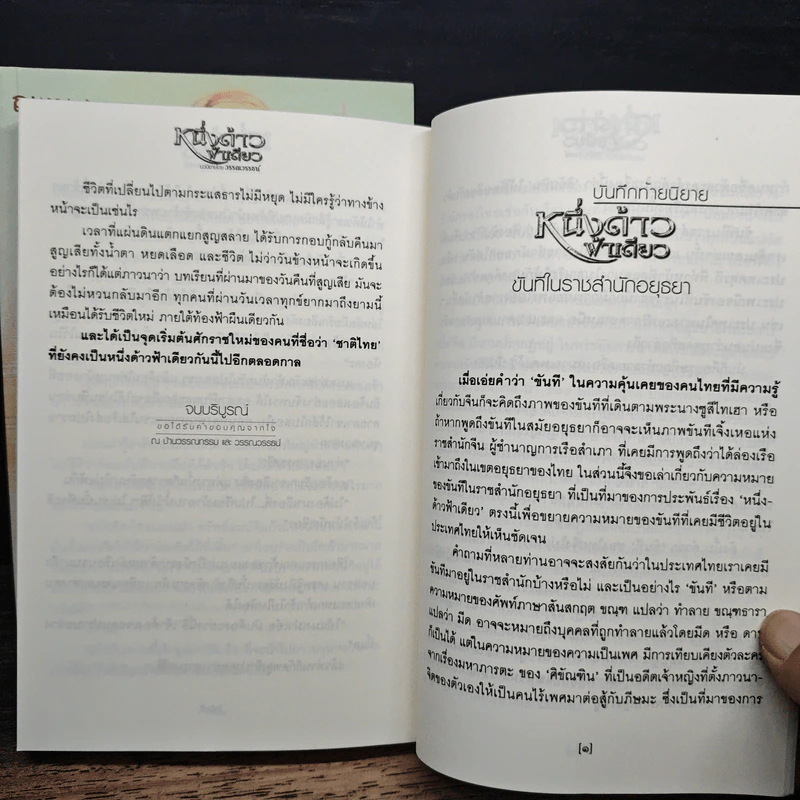 หนึ่งด้าว
ฟ้าเดียว
ชีวิตที่เปลี่ยนไปตามกระแสธารไม่มีหยุด ไม่มีใครรู้ว่าทางข้าง
หน้าจะเป็นเช่นไร
เวลาที่แผ่นดินแตกแยกสูญสลาย ได้รับการกอบกู้กลับคืนมา
สูญเสียทั้งน้ำตา หยดเลือด และชีวิต ไม่ว่าวันข้างหน้าจะเกิดขึ้น
อย่างไรก็ได้แต่ภาวนาว่า บทเรียนที่ผ่านมาของวันคืนที่สูญเสีย มันจะ
ต้องไม่หวนกลับมาอีก ทุกคนที่ผ่านวันเวลาทุกข์ยากมาถึงยามนี้
เหมือนได้รับชีวิตใหม่ ภายใต้ท้องฟ้าผืนเดียวกัน
และได้เป็นจุดเริ่มต้นศักราชใหม่ของคนที่ชื่อว่า ‘ชาติไทย’
ที่ยังคงเป็นหนึ่งด้าวฟ้าเดียวกันนี้ไปอีกตลอดกาล
จบบริบูรณ์
ขอได้รับคำขอบคุณจากใจ
ณ บ้านวรรณกรรม และ วรรณวรรธน์
บันทึกท้ายนิยาย
หนึ่งด้าว
ฟ้าเดียว
ขันทีในราชสำนักอยุธยา
เมื่อเอ่ยคำว่า ‘ขันที’ ในความคุ้นเคยของคนไทยที่มีความรู้
เกี่ยวกับจีนก็จะคิดถึงภาพของขันทีที่เดินตามพระนางซูสีไทเฮา หรือ
ถ้าหากพูดถึงขันทีในสมัยอยุธยาก็อาจจะเห็นภาพขันทีเจิ้งเหอแห่ง
ราชสำนักจีน ผู้ชำนาญการเรือสำเภา ที่เคยมีการพูดถึงว่าได้ล่องเรือ
เข้ามาถึงในเขตอยุธยาของไทย ในส่วนนี้จึงขอเล่าเกี่ยวกับความหมาย
ของขันทีในราชสำนักอยุธยา ที่เป็นที่มาของการประพันธ์เรื่อง ‘หนึ่ง-
ด้าวฟ้าเดียว’ ตรงนี้เพื่อขยายความหมายของขันทีที่เคยมีชีวิตอยู่ใน
ประเทศไทยให้เห็นชัดเจน
คำถามที่หลายท่านอาจจะสงสัยกันว่าในประเทศไทยเราเคยมี
ขันทีมาอยู่ในราชสำนักบ้างหรือไม่ และเป็นอย่างไร ‘ขันที’ หรือตาม
ความหมายของศัพท์ภาษาสันสกฤต ขณฺฑ แปลว่า ทำลาย ขณฺฑธารา
แปลว่า มีด อาจจะหมายถึงบุคคลที่ถูกทำลายแล้วโดยมีด หรือ ดาบ
ก็เป็นได้ แต่ในความหมายของความเป็นเพศ มีการเทียบเคียงตัวละคร
จากเรื่องมหาภารตะ ของ ‘ศิขัณฑิน’ ที่เป็นอดีตเจ้าหญิงที่ตั้งภาวนา-
จิตของตัวเองให้เป็นคนไร้เพศมาต่อสู้กับภีษมะ ซึ่งเป็นที่มาของการ
[๑]